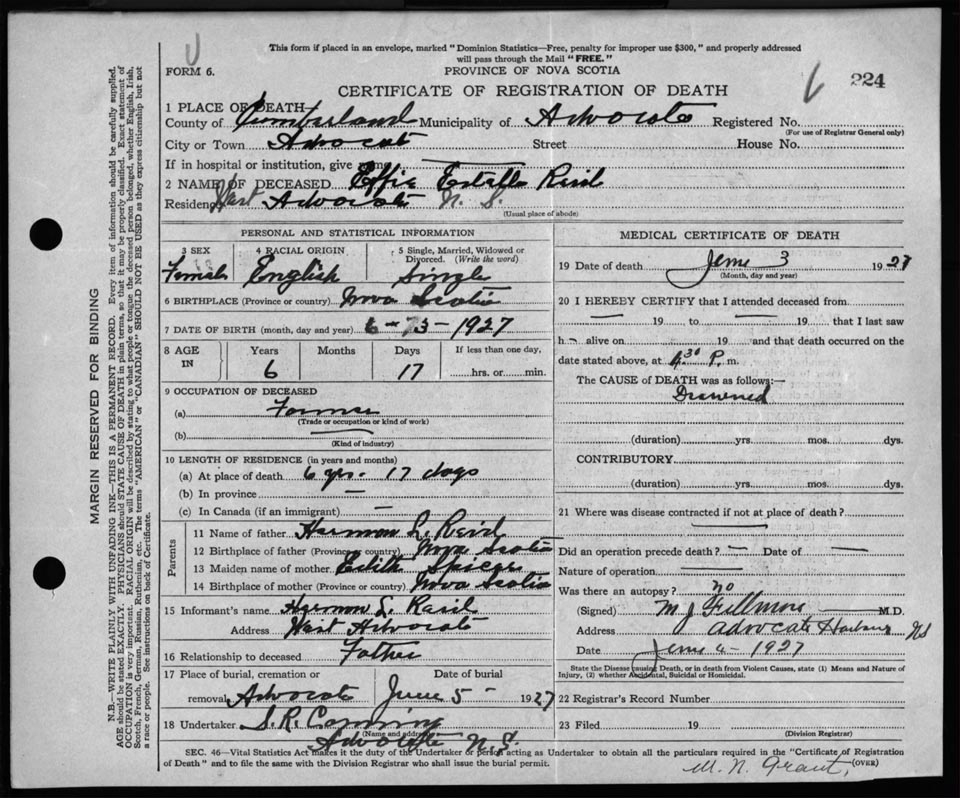 This form if placed in an envelope, marked "Dominion Statistics—Free, penalty for improper use $300," and properly addressed
will pass through the Mail "FREE."
FORM 6.
PROVINCE OF NOVA SCOTIA
224
CERTIFICATE OF REGISTRATION OF DEATH
1 PLACE OF DEATH
County of Cumberland Municipality of Advocate Registered No.
(For use of Registrar General only)
City or Town Advocate Street House No.
If in hospital or institution, give name
2 NAME OF DECEASED Effie Estella Reid
Residence West Advocate N. S.
(Usual place of abode)
PERSONAL AND STATISTICAL INFORMATION
3 SEX 4 RACIAL ORIGIN 5 Single, Married, Widowed or
Divorced. (Write the word)
Female English Single
6 BIRTHPLACE (Province or country) Nova Scotia
7 DATE OF BIRTH (month, day and year) 1927
8 AGE IN Years Months Days If less than one day,
6 17 hrs. or min.
9 OCCUPATION OF DECEASED
(a)
(Trade or occupation or kind of work)
(b)
(Kind of industry)
10 LENGTH OF RESIDENCE (in years and months)
(a) At place of death 6 yrs. 17 days
(b) In province —
(c) In Canada (if an immigrant) —
Parents
11 Name of father Harmon L. Reid
12 Birthplace of father (Province or country) Nova Scotia
13 Maiden name of mother Edith Spicer
14 Birthplace of mother (Province or country) Nova Scotia
15 Informant's name Harmon L. Reid
Address West Advocate
16 Relationship to deceased Father
17 Place of burial, cremation or Date of burial
removal Advocate June 5 - 1927
18 Undertaker S. R. Canning
(Name and address)
Advocate N.S.
MEDICAL CERTIFICATE OF DEATH
19 Date of death June 3 1927
(Month, day and year)
20 I HEREBY CERTIFY that I attended deceased from
19 to 19 that I last saw
h alive on 19 and that death occurred on the
date stated above, at 4.30 P. m.
The CAUSE of DEATH was as follows:—
Drowned
(duration) yrs. mos. dys.
CONTRIBUTORY
(duration) yrs. mos. dys.
21 Where was disease contracted if not at place of death?
Did an operation precede death? — Date of —
Nature of operation
Was there an autopsy? no
(Signed) M J Fillmore M.D.
Address Advocate Harbour NS
Date June 4 - 1927
State the Disease causing Death, or in death from Violent Causes, state (1) Means and Nature of
Injury, (2) whether Accidental, Suicidal or Homicidal.
22 Registrar's Record Number
23 Filed 19
(Division Registrar)
SEC. 46—Vital Statistics Act makes it the duty of the Undertaker or person acting as Undertaker to obtain all the particulars required in the "Certificate of Registration
of Death" and to file the same with the Division Registrar who shall issue the burial permit.
(OVER)
M. N. Grant,
MARGIN RESERVED FOR BINDING
N.B.—WRITE PLAINLY WITH UNFADING INK—THIS IS A PERMANENT RECORD. Every item of information should be carefully supplied.
AGE should be stated EXACTLY. PHYSICIANS should STATE CAUSE OF DEATH in plain terms, so that it may be properly classified. Exact statement of
OCCUPATION is very important. RACIAL ORIGIN will be described by stating to what people or tongue the deceased person belonged, whether English, Irish,
Scotch, French, German, Russian, Ruthenian, etc. The terms "AMERICAN" or "CANADIAN" SHOULD NOT BE USED as they express citizenship but not
a race or people. See instructions on back of Certificate.